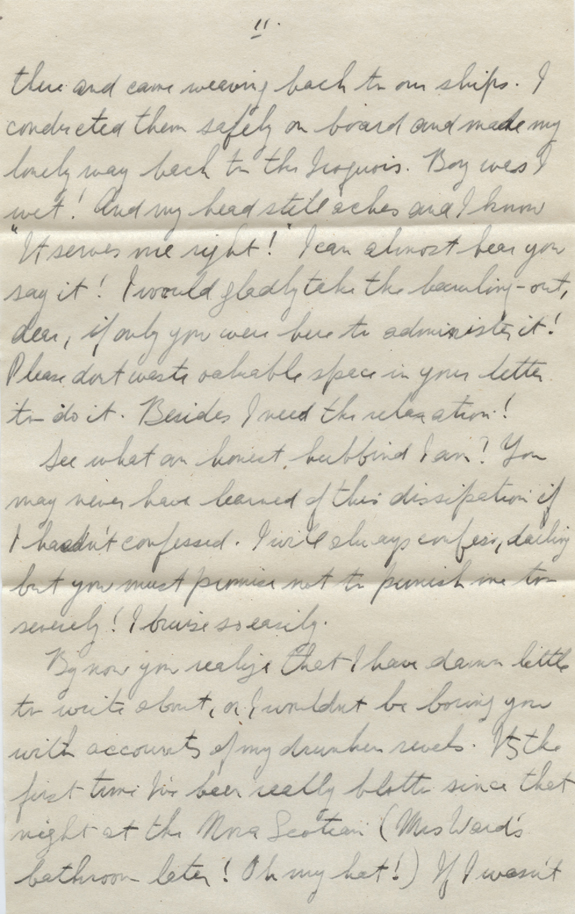 11.
there and came weaving back to our ships. I
conducted them safely on board and made my
lonely way back to the Iroquois. Boy was I
wet! And my head still aches and I know
"It serves me right!" I can almost hear you
say it! I would gladly take the bawling-out,
dear, if only you were here to administer it!
Please dont waste valuable space in your letter
to do it. Besides I need the relaxation!
See what an honest hubbind I am? You
may never have learned of this dissipation if
I hadn't confessed. I will always confess, darling
but you must promise not to punish me too
severely! I bruise so easily.
By now you realize that I have damn little
to write about, or I wouldnt be boring you
with accounts of my drunken revels. It's the
first time I've been really blotto since that
night at the Nova Scotian (Mrs Ward's
bathroom later! Oh my hat!) If I wasn't